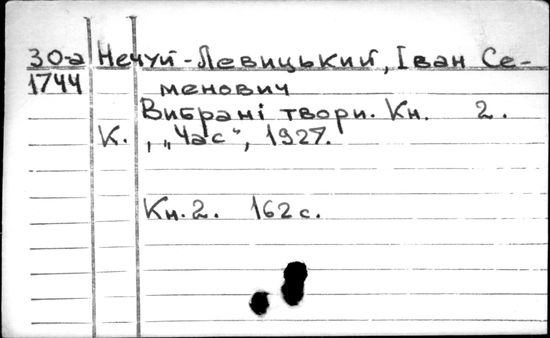 30-а Нечуй-Левицький, Іван Се-
1744 менович
Вибрані твори. Кн. 2.
К., „Час", 1927.
Кн. 2. 162 с.